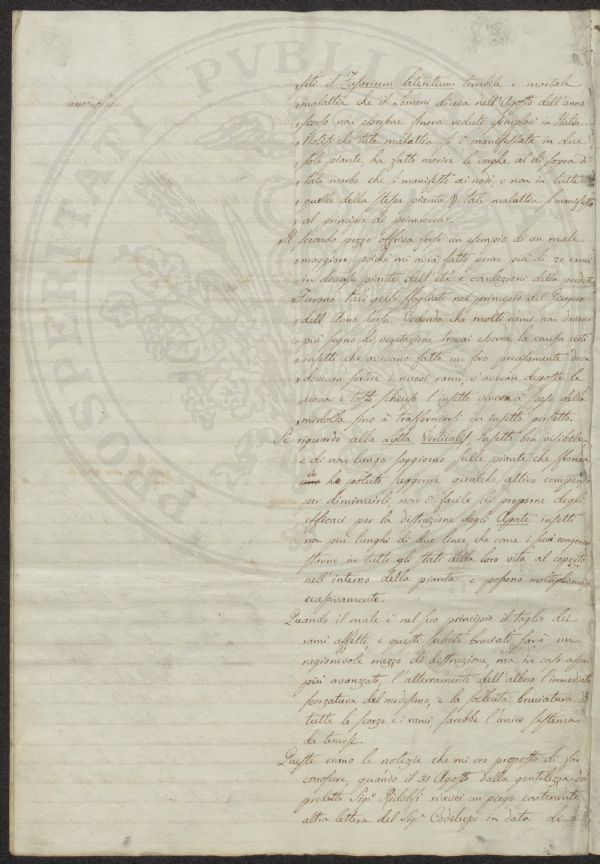 "siti il Fusarium lateritium terribile e mortale
"malattia che il Lomeni diceva nell'Agosto dell'anno
"scorso non essersene finora veduti esemplari in Italia.
"Notisi che tale malattia si è manifestata in due
"sole piante, ha fatti morire le verghe al di sopra di
"tale morbo che si manifestò ai nodi, e non in tutte
"quelle della stessa pianta; tale malattia si manifestò
"al principio di primavera.
"Il secondo pezzo offriva forse un esempio di un male
"maggiore poichè mi avrà fatto perire più di 20 rami
"in diverse piante dell'età e condizioni della predetta
"Furono tali gelsi sfogliati nel principio del Giugno
"dell'Anno scorso. Vedendo che molti rami non davano
"più segno di vegetazione trovai esserne la causa certi
"insetti che avevano fatto un foro precisamente dove
"dovevan sortire i nuovi rami, v'avevan deposte le
"uova e tosto schiuso l'insetto viveva à spese della
"midolla fino à trasformarsi in insetto perfetto.
Se riguardo alla Verticalis, insetto ben visibile
e di non lungo soggiorno sulle piante che sfronda
ho potuto suggerire qualche attivo compenso
per diminuirli non è facile di proporne degli
efficaci per la distruzione degli Apate insetti
non più lunghi di due linee, che come i suoi congeneri
stanno in tutti gli stati della loro vita al coperto
nell'interno della pianta e possono moltiplicarsi
eccessivamente.
Quando il male è nel suo principio il taglio dei
rami affetti, e questi subito bruciati sarà un
ragionevole mezzo di distruzione, ma in caso assai
più avanzato, l'atterramento dell'albero l'immediata
scorzatura del medesimo, e la sollecita bruciatura di
tutte le scorze e i rami sarebbe l'unico sistema
da tenersi.
Queste erano le notizie che mi ero proposto di far
conoscere, quando il 31 Agosto dalla gentilezza del
predetto Sigr. Ridolfi ricevei un piego contenente
altra lettera del Sigr. Codelupi in data di
PVBLI
PROSPERITATI